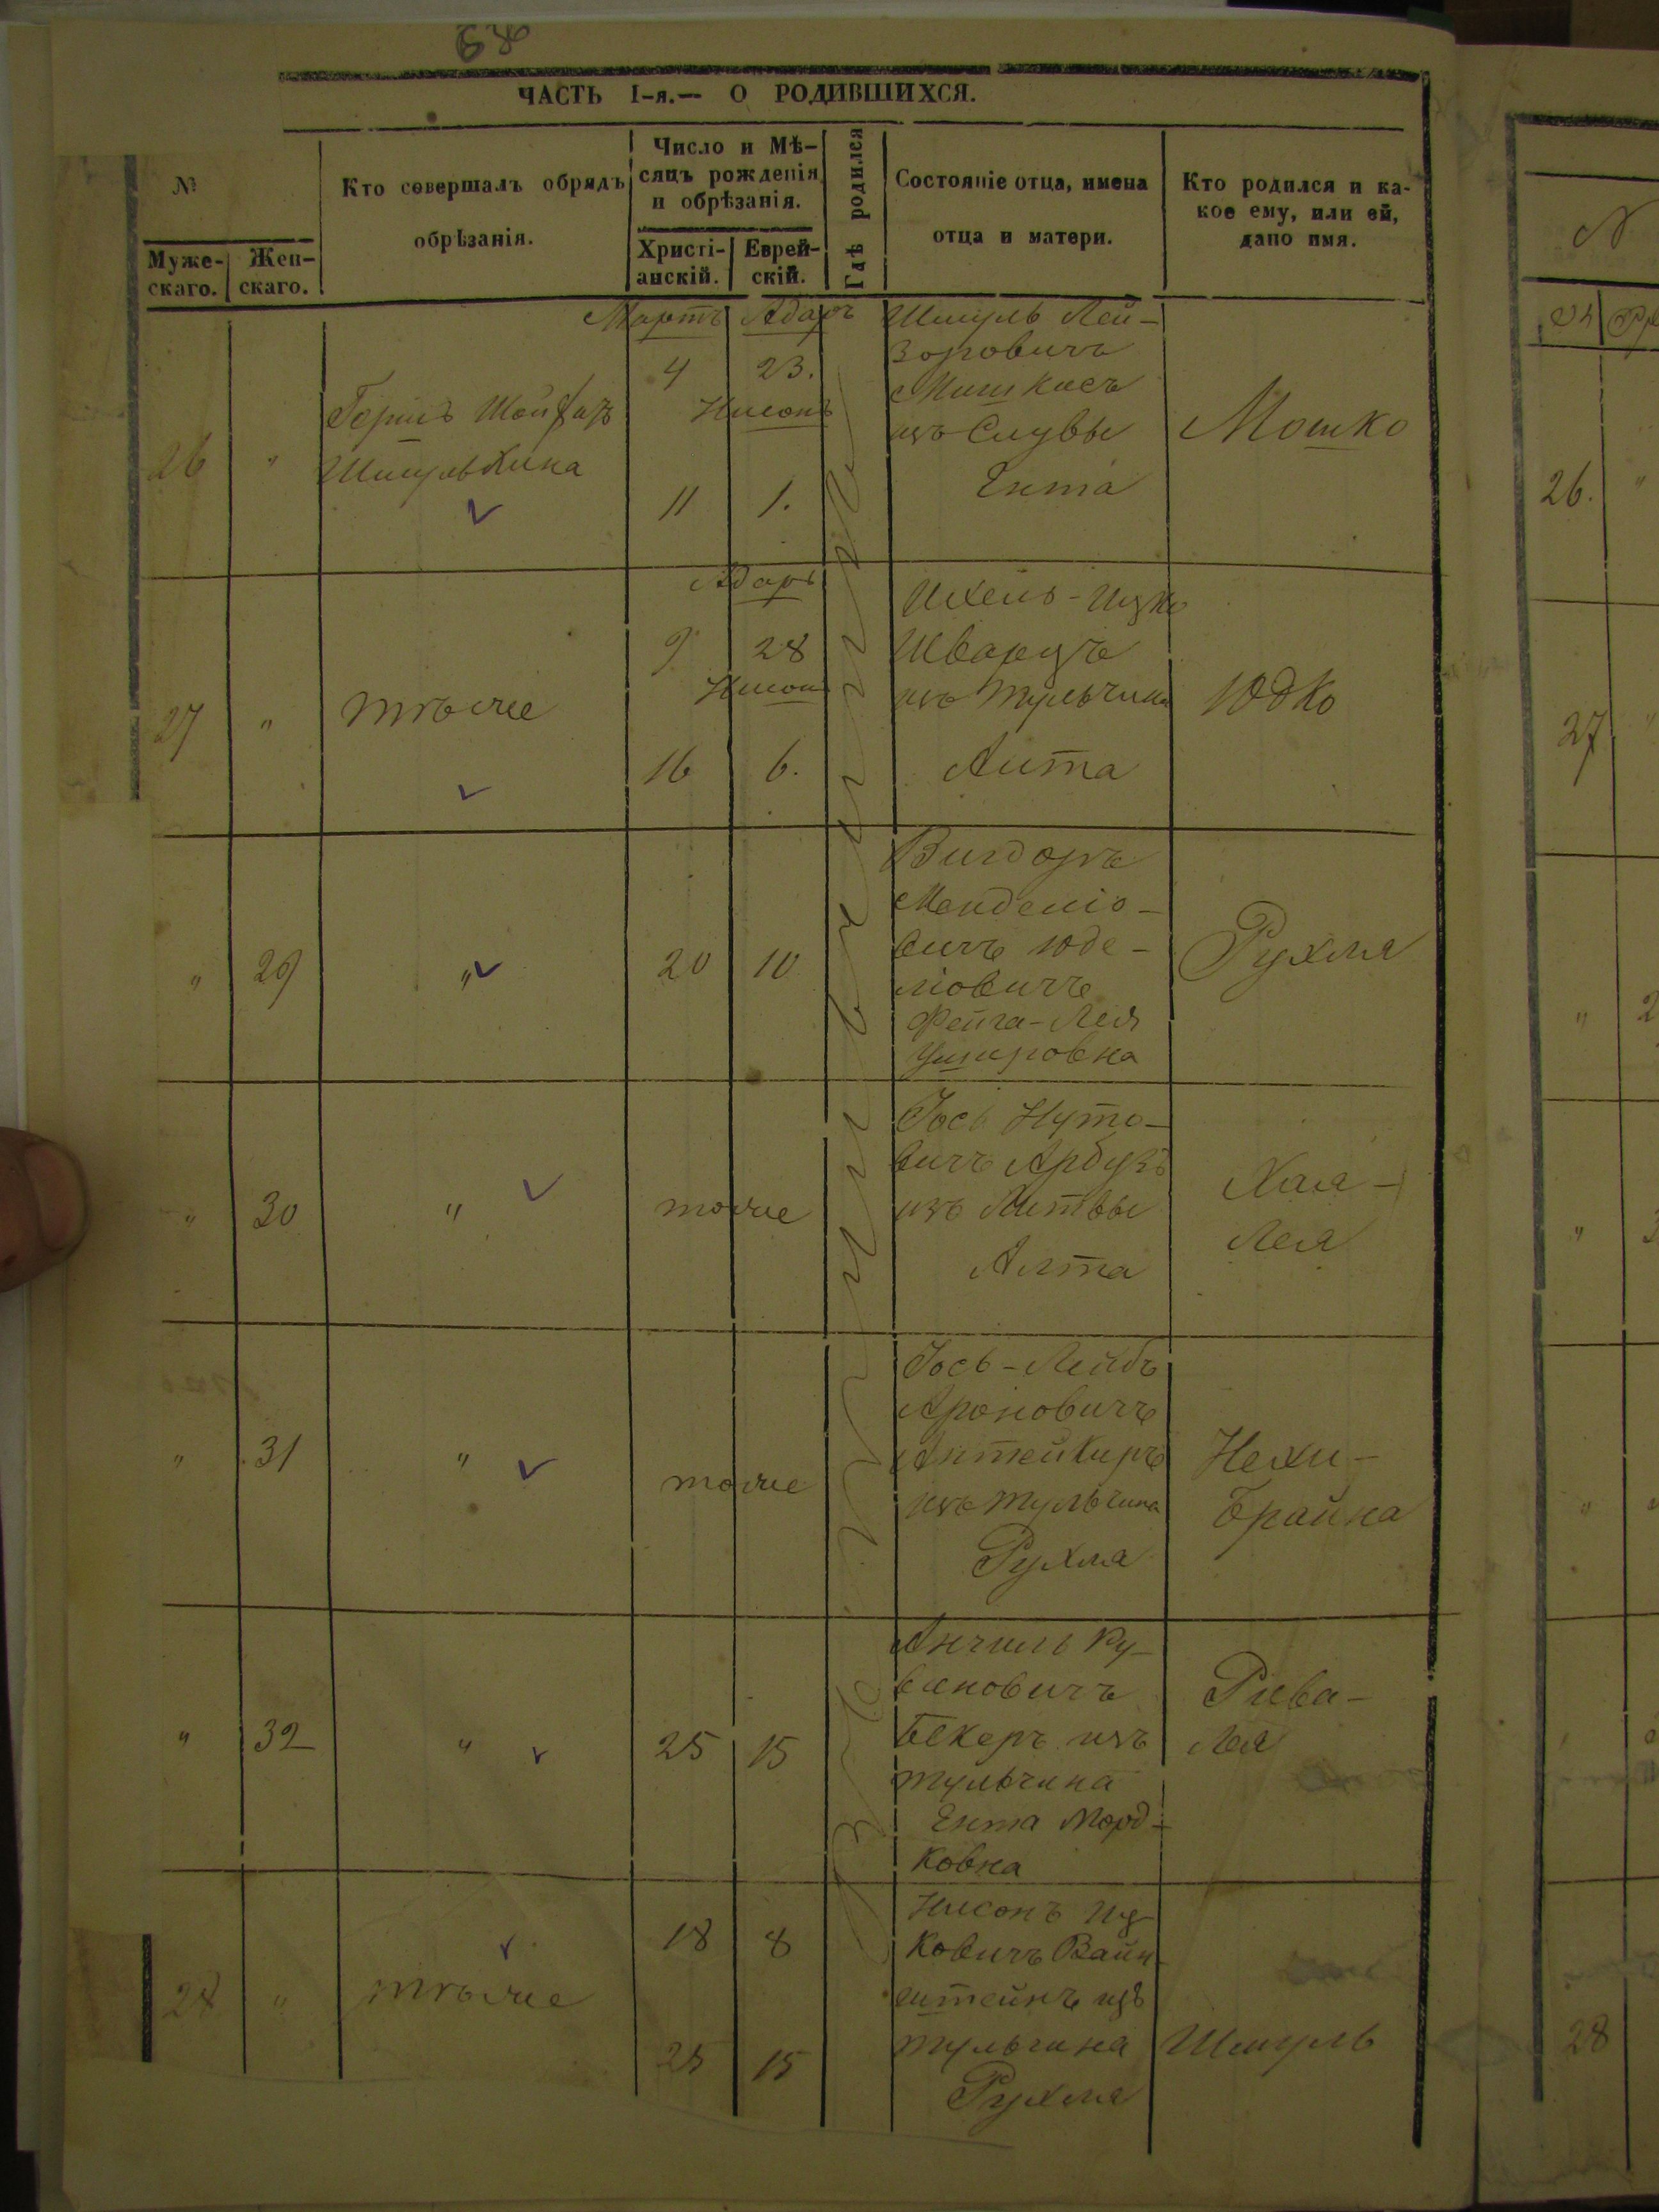 ЧАСТЬ I-я.— О РОДИВШИХСЯ.
№
Муже-
скаго.
Жен-
скаго.
Кто совершалъ обрядъ
обрѣзанія.
Число и Мѣ-
сяцъ рожденія
и обрѣзанія.
Христі-
анскій.
Еврей-
скій.
Гдѣ родился
Состояніе отца, имена
отца и матери.
Кто родился и ка-
кое ему, или ей,
дано имя.
Мартъ Адаръ
26 "
Шмуль Лей-
зоровичъ
4 23.
Нисонъ
изъ
Ента
Мошко
11 1.
Адаръ
27 "
тѣже
9 28
Нисонъ
16 6.
Ихель-Ицко
Шварцъ
изъ Тульчина
Юдко
" 29 "
20 10
Вигдоръ
Менделіо-
вичъ Юде-
ліовичъ
Фейга-Лея
Ушеровна
Рухля
" 30 "
тоже
Іось Нуто-
вичъ Арбузъ
изъ Литвы
Алта
Хая-
Лея
" 31 "
тоже
Іось-Лейбъ
Ароновичъ
изъ Тульчина
Рухля
Нехи-
Брайна
" 32 "
25 15
Анчиль Ру-
виновичъ
Бекеръ изъ
Тульчина
ЕнтаМорд-
ковна
Рива-
Лея
28 "
тѣже
18 8
25 15
Нисонъ Иц-
ковичъ Вайн-
штейнъ изъ
Тульчина
Рухля
Шмуль
26. "
27 "
"
"
"
28